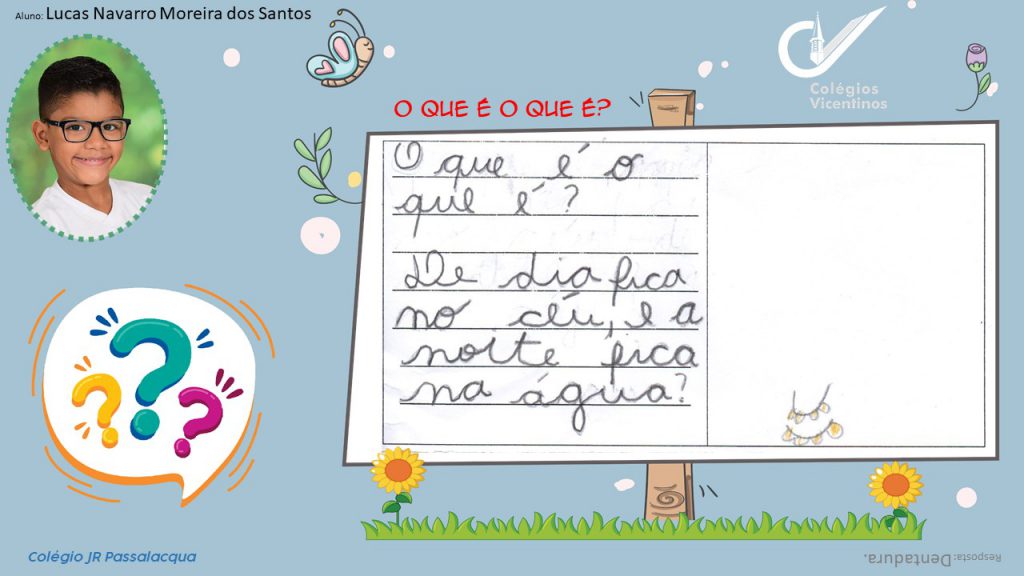 Aluno: Lucas Navarro Moreira dos Santos
Colégios
Vicentinos
O QUE É O QUE É?
O que é o
que é?
De dia fica
no céu, e a
noite fica
na água?
Colégio JR Passalacqua
Resposta: Dentadura.